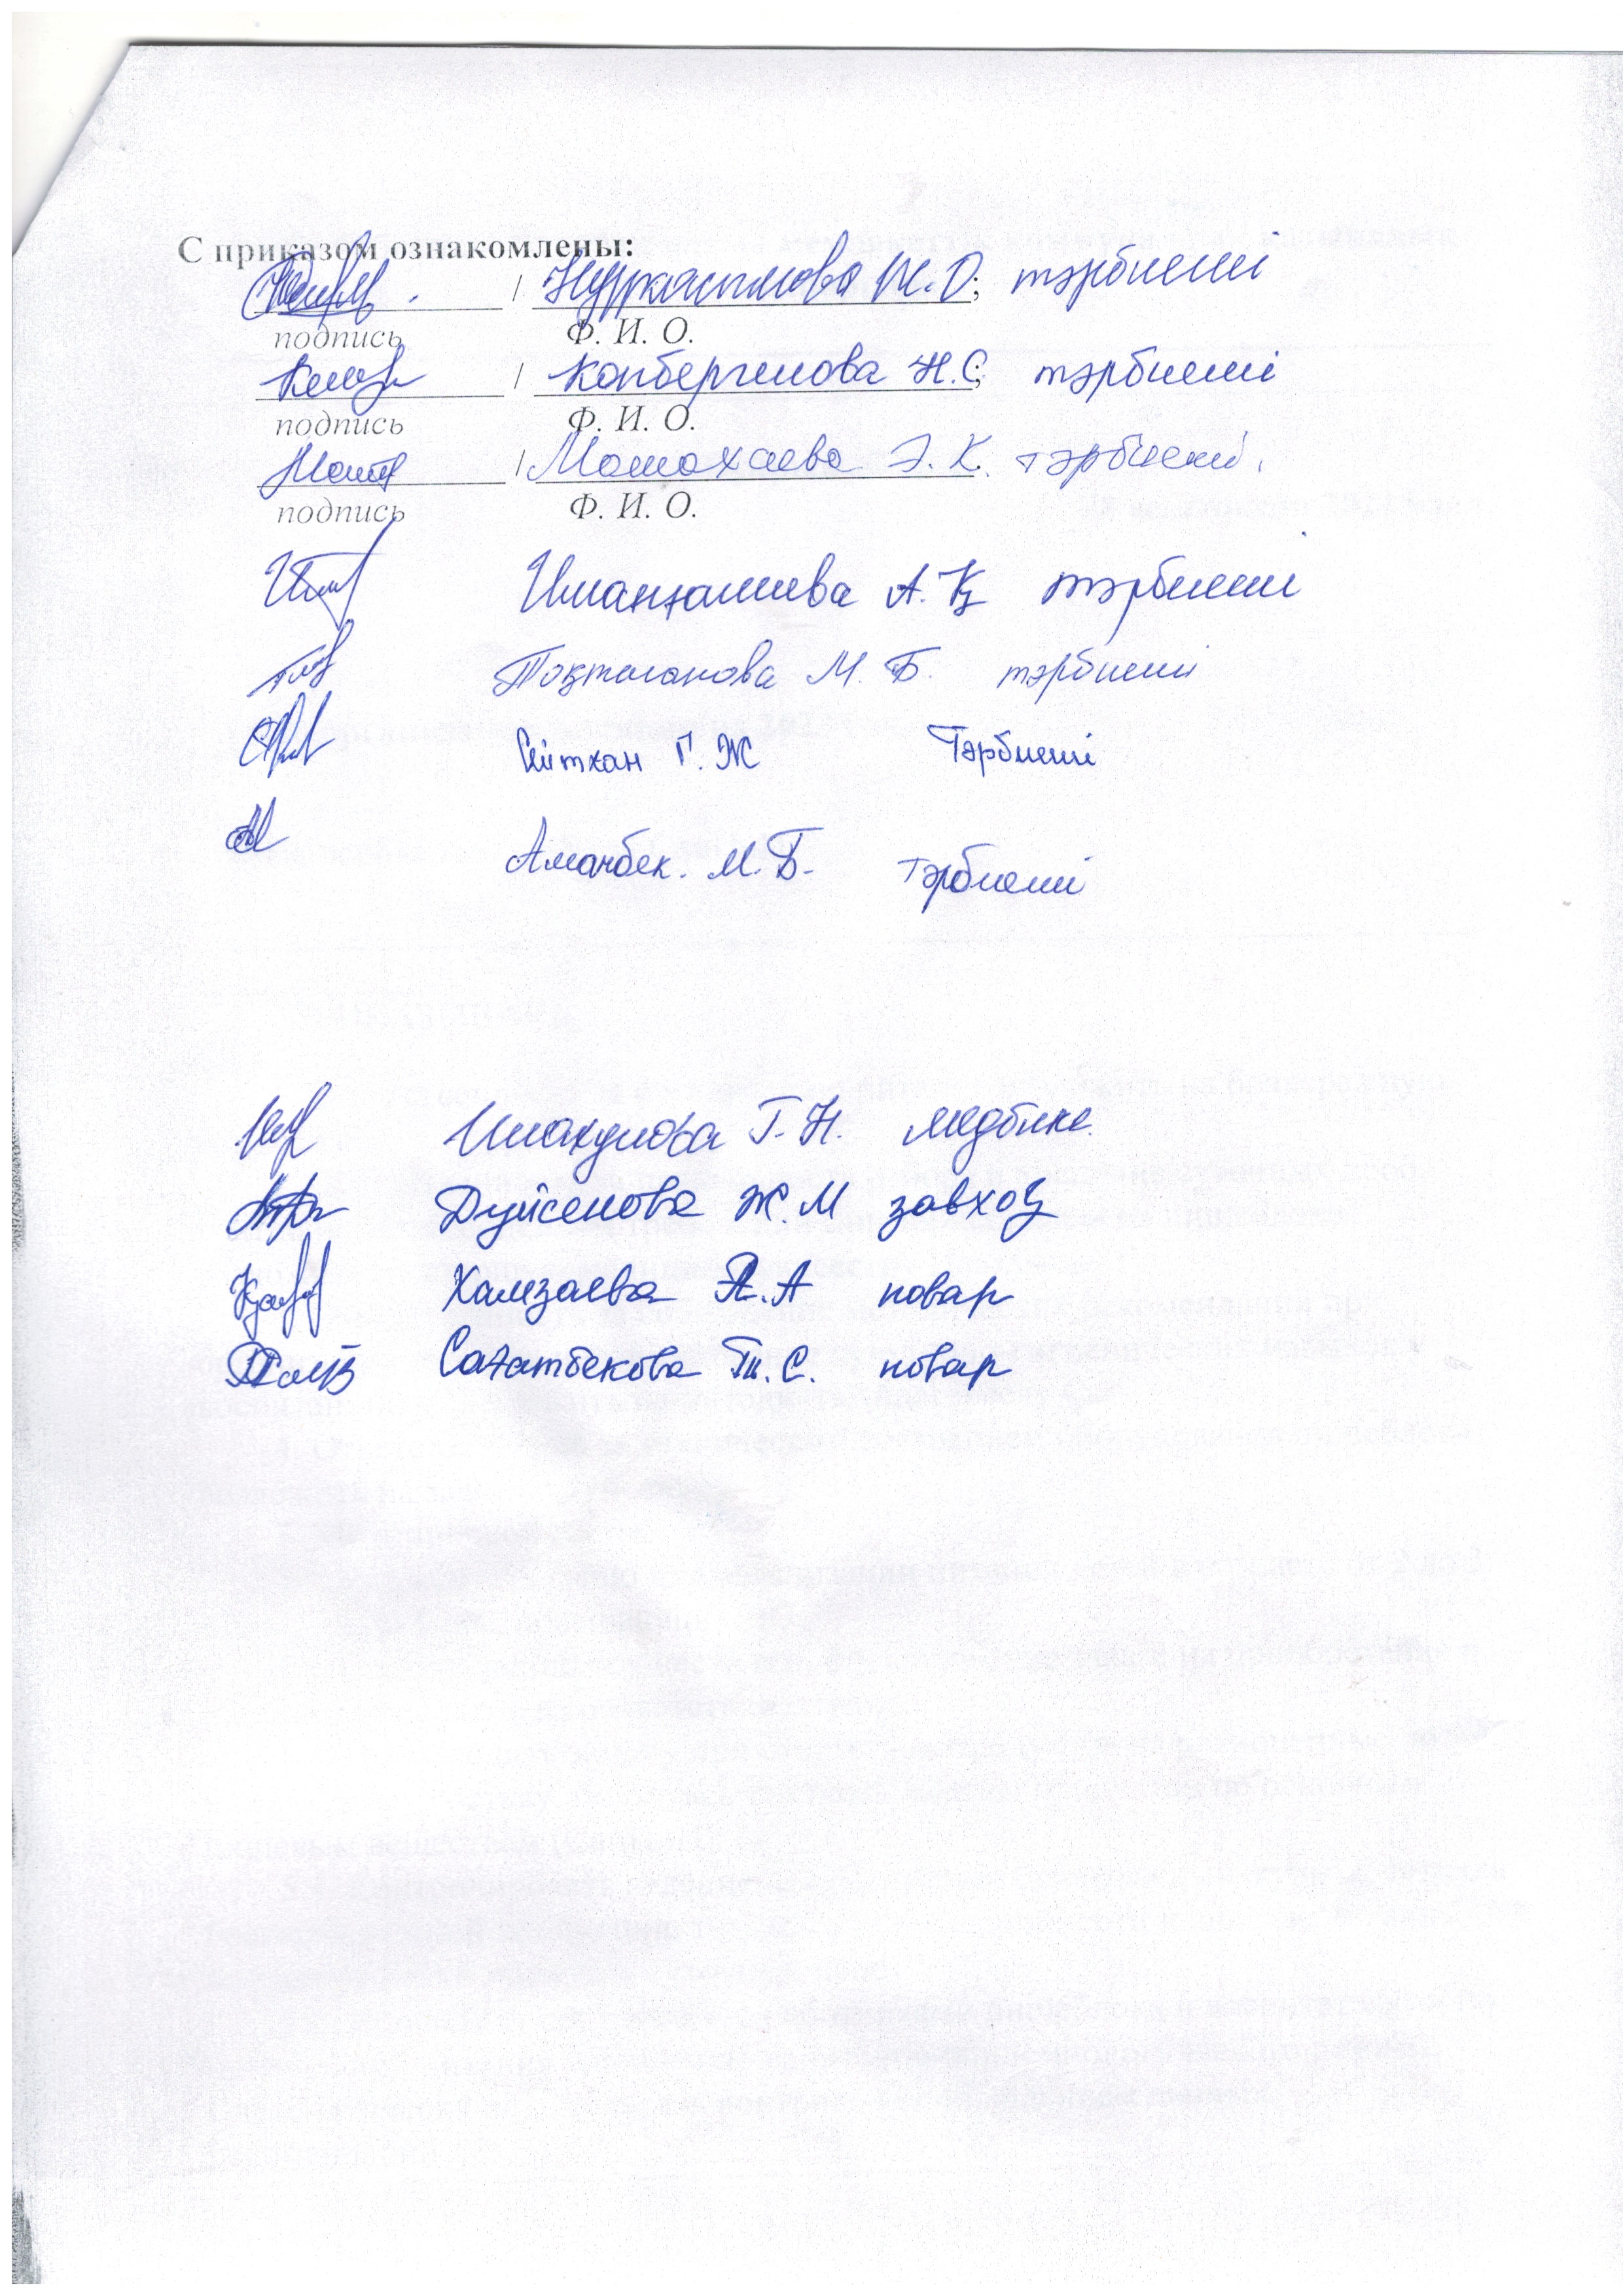 С приказом ознакомлены:
/ Нуркасымова Ж.О; тәрбиеші
подпись Ф. И. О.
/ Копбергенова Н.С; тәрбиеші
подпись Ф. И. О.
/ Мамахаева Э.К. тәрбиеші
подпись Ф. И. О.
А.Қ тәрбиеші
Тоқтағанова М.Б. тәрбиеші
Сейтхан Г.Ж Тәрбиеші
Аманбек. М.Б. тәрбиеші
Имакулова Г.Н. медбике.
Дуйсенова Ж.М завхоз
Хамзаева А.А повар
Сағатбекова Т.С. повар